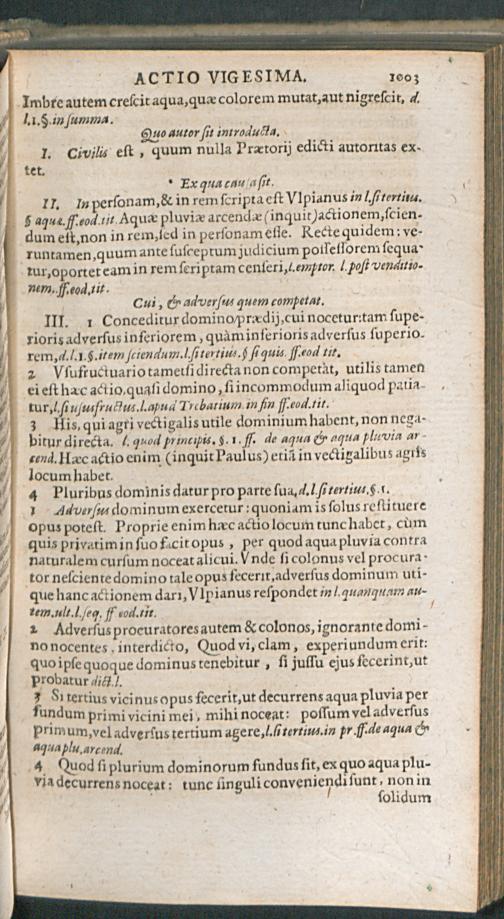 ACTIO VIGESIMA. 1003
Imbre autem creſcit aqua, quæ colorem mutat, aut nigreſcit, d.
l.1.§. in ſumma.
Quo autor ſit introducta.
I. Civilis eſt, quum nulla Prætorij edicti autoritas ex-
tet.
* Ex qua cauſa ſit.
II. In perſonam, & in rem ſcripta eſt Vlpianus in l. ſi tertius.
§ aquæ. ff. eod. tit. Aquæ pluviæ arcendæ (inquit) actionem, ſcien-
dum eſt, non in rem, ſed in perſonam eſſe. Recte quidem: ve-
runtamen, quum ante ſuſceptum judicium poſſeſſorem ſequa-
tur, oportet eam in rem ſcriptam cenſeri, l. emptor. l. poſt venditio-
nem. ff. eod. tit.
Cui, & adverſus quem competat.
III. 1 Conceditur domino prædij, cui nocetur: tam ſupe-
rioris adverſus inferiorem, quàm inferioris adverſus ſuperio-
rem, d. l. 1. §. item ſciendum. l. ſi tertius. § ſi quis. ff. eod tit.
2 Vſufructuario tametſi directa non competàt, utilis tamen
ei eſt hæc actio, quaſi domino, ſi incommodum aliquod patia-
tur, l. ſi uſusfructus. l. apud Trebatium. in fin ff. eod. tit.
3 His, qui agri vectigalis utile dominium habent, non nega-
bitur directa. l. quod principis. §. 1. ff. de aqua & aqua pluvia ar-
cend. Hæc actio enim (inquit Paulus) etiã in vectigalibus agris
locum habet.
4 Pluribus dominis datur pro parte ſua, d. l. ſi tertius. §. 1.
1 Adverſus dominum exercetur: quoniam is ſolus reſtituere
opus poteſt. Proprie enim hæc actio locum tunc habet, cùm
quis privatim in ſuo facit opus, per quod aqua pluvia contra
naturalem curſum noceat alicui. Vnde ſi colonus vel procura-
tor neſciente domino tale opus fecerit, adverſus dominum uti-
que hanc actionem dari, Vlpianus reſpondet in l. quanquam au-
tem. ult. l. ſeq. ff eod. tit.
2 Adverſus procuratores autem & colonos, ignorante domi-
no nocentes, interdicto, Quod vi, clam, experiundum erit:
quo ipſe quoque dominus tenebitur, ſi juſſu ejus fecerint, ut
probatur dict. l.
3 Si tertius vicinus opus fecerit, ut decurrens aqua pluvia per
fundum primi vicini mei, mihi noceat: poſſum vel adverſus
primum, vel adverſus tertium agere, l. ſi tertius. in pr. ff. de aqua &
aqua plu. arcend.
4 Quod ſi plurium dominorum fundus ſit, ex quo aqua plu-
via decurrens noceat: tunc ſinguli conveniendi ſunt, non in
ſolidum